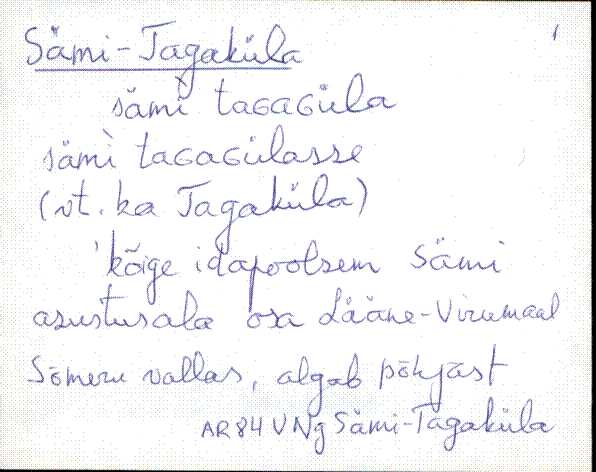 1
Sämi-Tagaküla
sämì taGaGüla
sämì taGaGülasse
(vt. ka Tagaküla)
'kõige idapoolsem Sämi
asustusala osa Lääne-Virumaal
Sõmeru vallas, algab põhjast
AR 84 VNg Sämi-Tagaküla